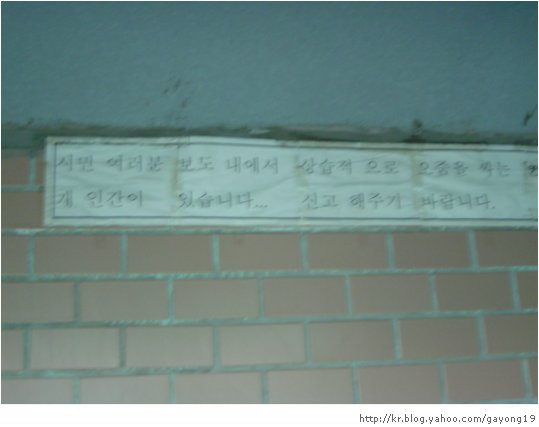 시민 여러분 보도 내에서 상습적 으로 오줌을 싸는
개 인간이 있습니다... 신고 해주기 바랍니다.
http://kr.blog.yahoo.com/gayong19